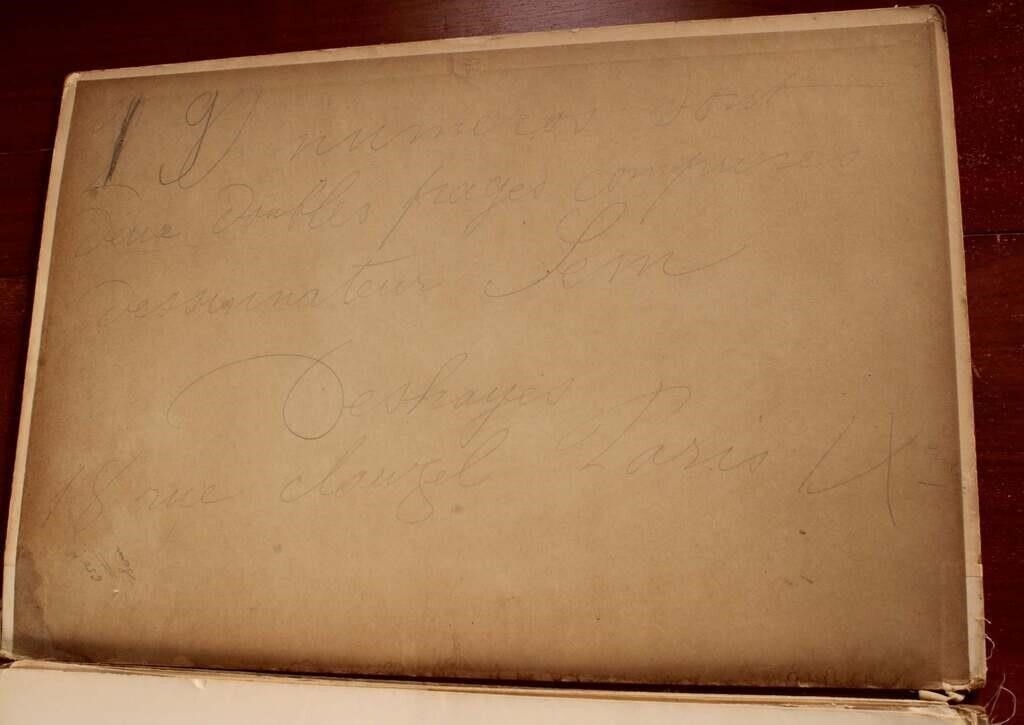 19 numeros dont
Deux Doubles pages comprises
Dessinnateur Sem
Deshayes
18 rue clauzel Paris IX